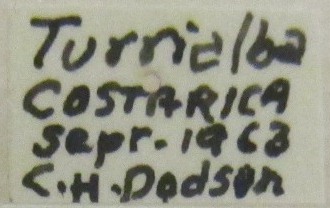 Turrialba
COSTARICA
sepr. 1963
C.H.Dodson